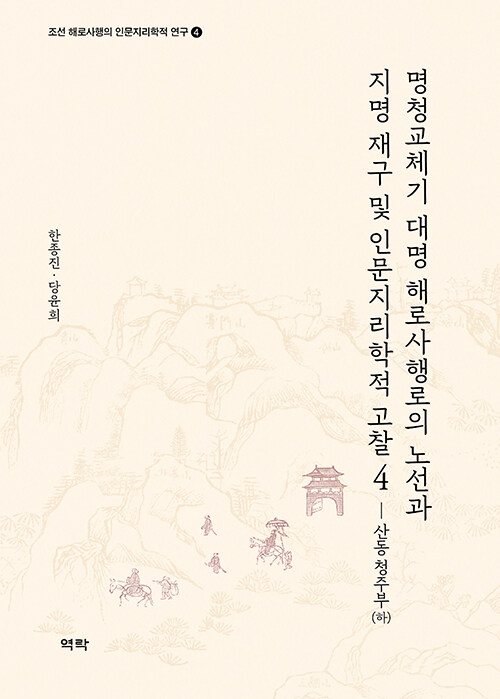 조선 해로사행의 인문지리학적 연구 4
명청교체기 대명 해로사행로의 노선과
지명 재구 및 인문지리학적 고찰 4 — 산동 청주부(하)
한종진 · 당윤희
역락